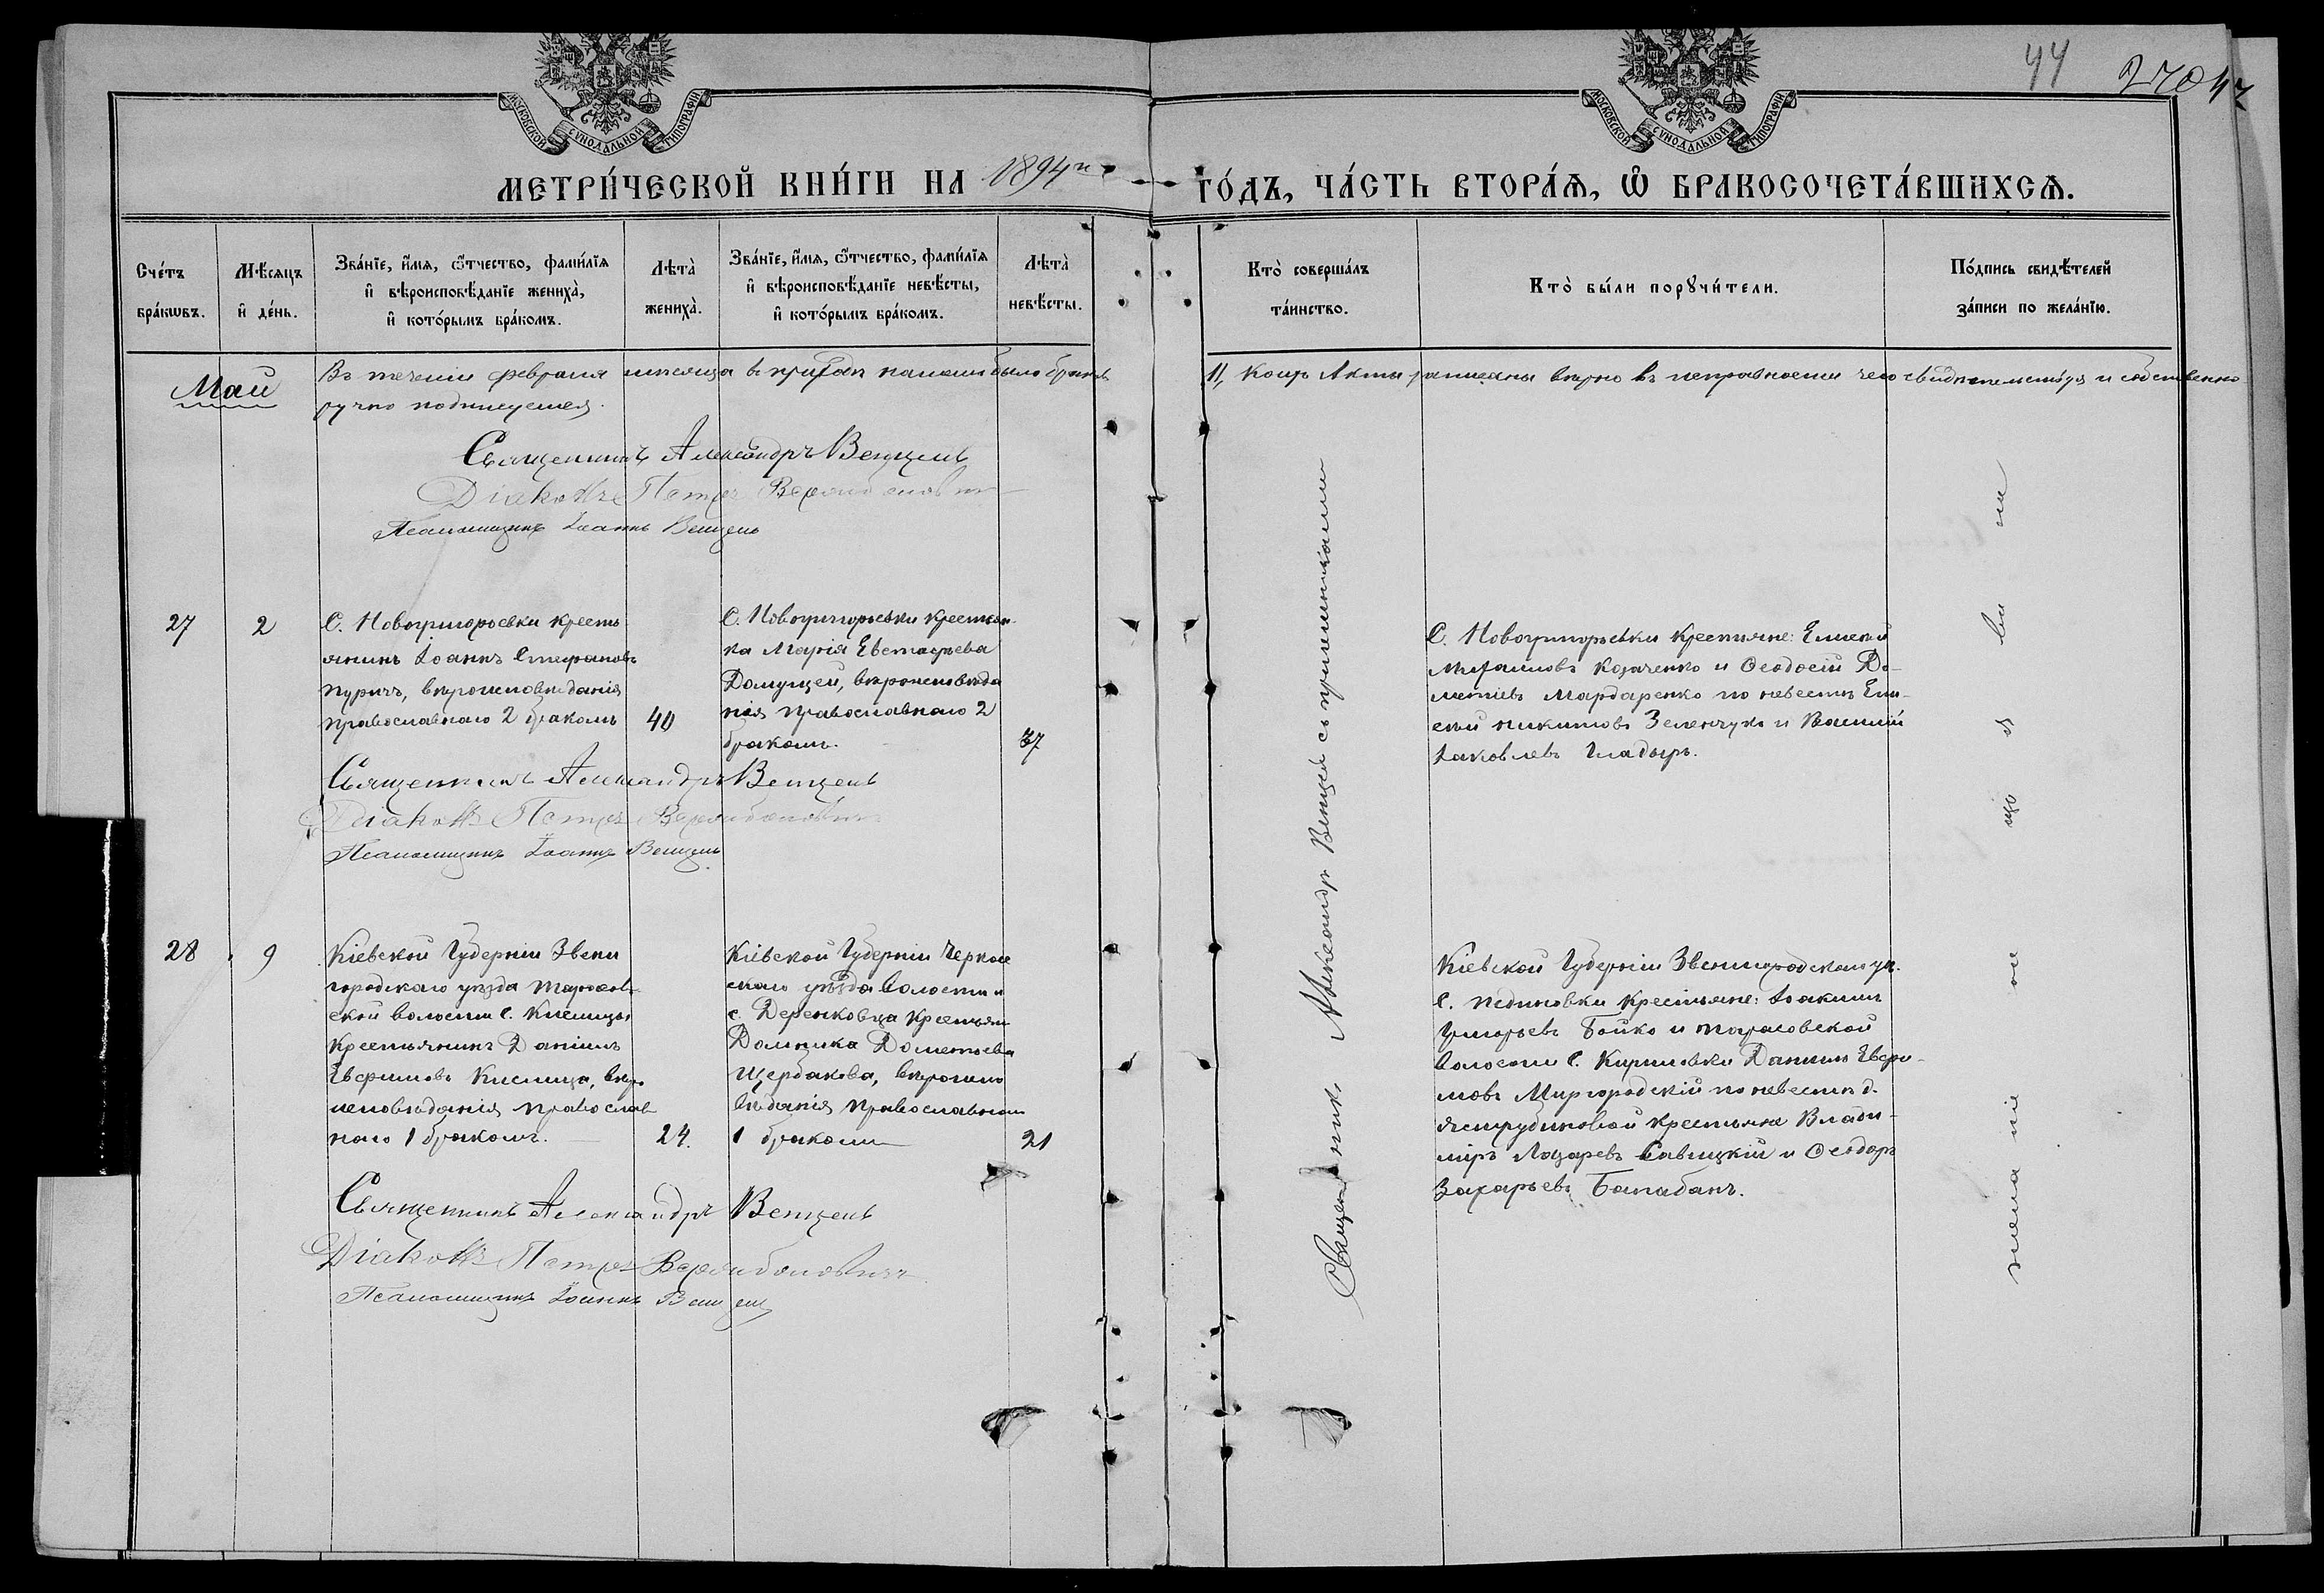 44 270 42
МОСКОВСКОЙ СѴНОДАЛЬНОЙ ТИПОГРАФІИ
МОСКОВСКОЙ СѴНОДАЛЬНОЙ ТИПОГРАФІИ
МЕТРИ́ЧЕСКОЙ КНИ́ГИ НА 1894й ГО́ДЪ, ЧА́СТЬ ВТОРА́Ѧ, Ѽ БРАКОСОЧЕТА́ВШИХСѦ.
Сче́тъ
бра́кѡвъ.
Мѣ́сяцъ
и҆ де́нь.
Зва́нїе, и҆́мѧ, ѻ҆́тчество, фамилїѧ
и҆ вѣроисповѣ́данїе жениха̀,
и҆ кото́рымъ бра́комъ.
Лѣта̀
жениха̀.
Зва́нїе, и҆́мѧ, ѻ҆́тчество, фамилїѧ
и҆ вѣроисповѣ́данїе невѣ́сты,
и҆ кото́рымъ бра́комъ.
Лѣта̀
невѣ́сты.
Кто̀ соверша́лъ
та́инство.
Кто̀ бы́ли порꙋчи́тели.
По́дпись свидѣ́телей
за́писи по жела́нїю.
Май
Въ теченіи февраля мѣсяца въ приходѣ нашемъ было браковъ 11, коихъ Акты записаны вѣрно въ исправности чего свидѣтельствуя и собственно
ручно подпишемся.
Священникъ Александръ Венцель
Діаконъ Петръ
Псаломщикъ Іоаннъ Венцель
27
2
С. Новогригорьевки кресть
янинъ Іоаннъ Стефановъ
Пуричъ, вѣроисповѣданія
православнаго 2 бракомъ
40
С. Новогригорьевки крестьян-
ка Марія Евстафьева
Домущей, вѣроисповѣда
нія православнаго 2
бракомъ.
37
С. Новогригорьевки крестьяне: Елисей
Михайловъ Козаченко и Ѳеодосій До-
метіевъ Мардаренко по невестѣ Ели-
сей Никитовъ Зеленчукъ и Василій
Іаковлевъ Гладырь.
Священникъ Александръ Венцель
Діаконъ Петръ
Псаломщикъ Іоаннъ Венцель
28
9
Кіевской Губерніи Звени
городскаго уѣзда Тарасов-
ской волости с. Кислицы
крестьянинъ Даніилъ
Евфимовъ Кислица, вѣро
исповѣданія православ
наго 1 бракомъ.
24.
Кіевской Губерніи Черкас
скаго уѣзда волости и
с. Деренковца крестьян
Домника Дометьева
Щербакова, вѣроиспо
вѣданія православнаго
1 бракомъ
21
Кіевской Губерніи Звенигородскаго уѣ.
с. Пединовки крестьяне: Іоакимъ
Григорьевъ Бойко и Тарасовской
волости с. Кириловки Даніилъ Евфи-
мовъ Миргородскій по невестѣ д.
Яструбиновой крестьяне Влади-
міръ Лазаревъ Савицкій и Ѳеодоръ
Захарьевъ Балабанъ.
Священникъ Александръ Венцель
Діаконъ Петръ
Псаломщикъ Іоаннъ Венцель
Священникъ Александръ Венцель съ причтниками